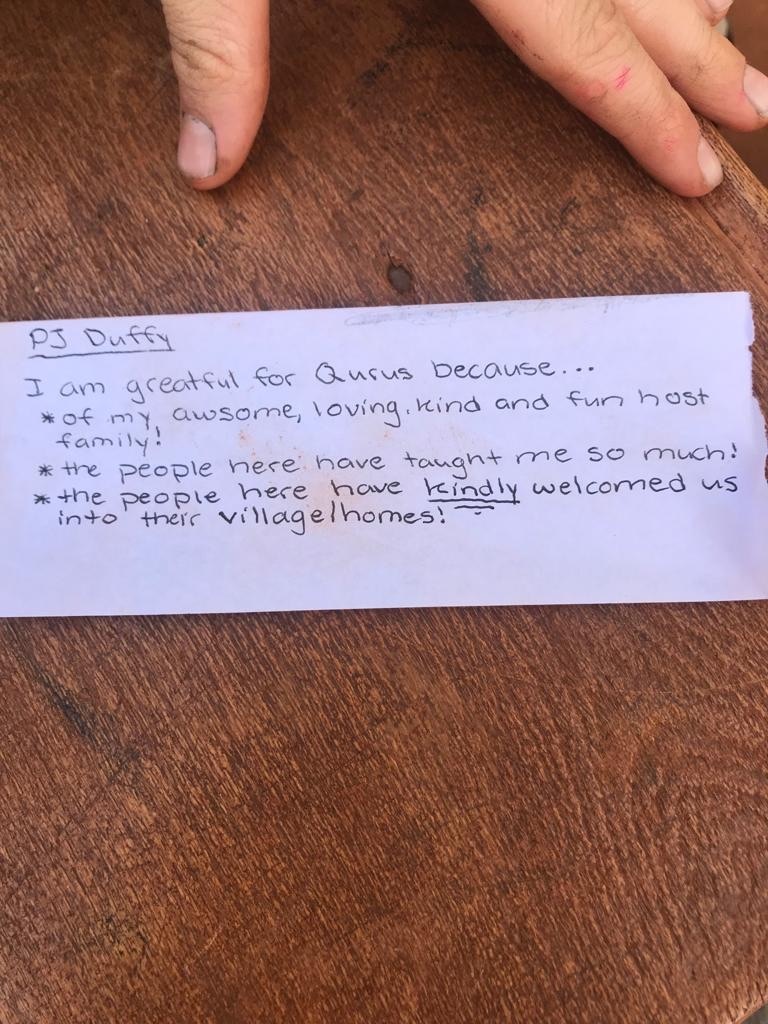 PJ Duffy
I am greatful for Qurus because...
* of my awsome, loving, kind and fun host
family!
* the people here have taught me so much!
* the people here have kindly welcomed us
into their village/homes!